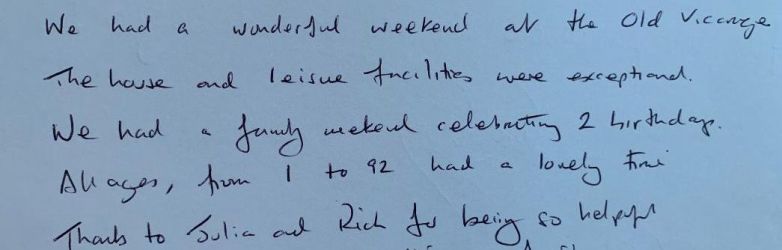 We had a wonderful weekend at the Old Vicarage
The house and leisure facilities were exceptional.
We had a family weekend celebrating 2 birthdays.
All ages, from 1 to 92 had a lovely time
Thanks to Julia and Rich for being so helpful